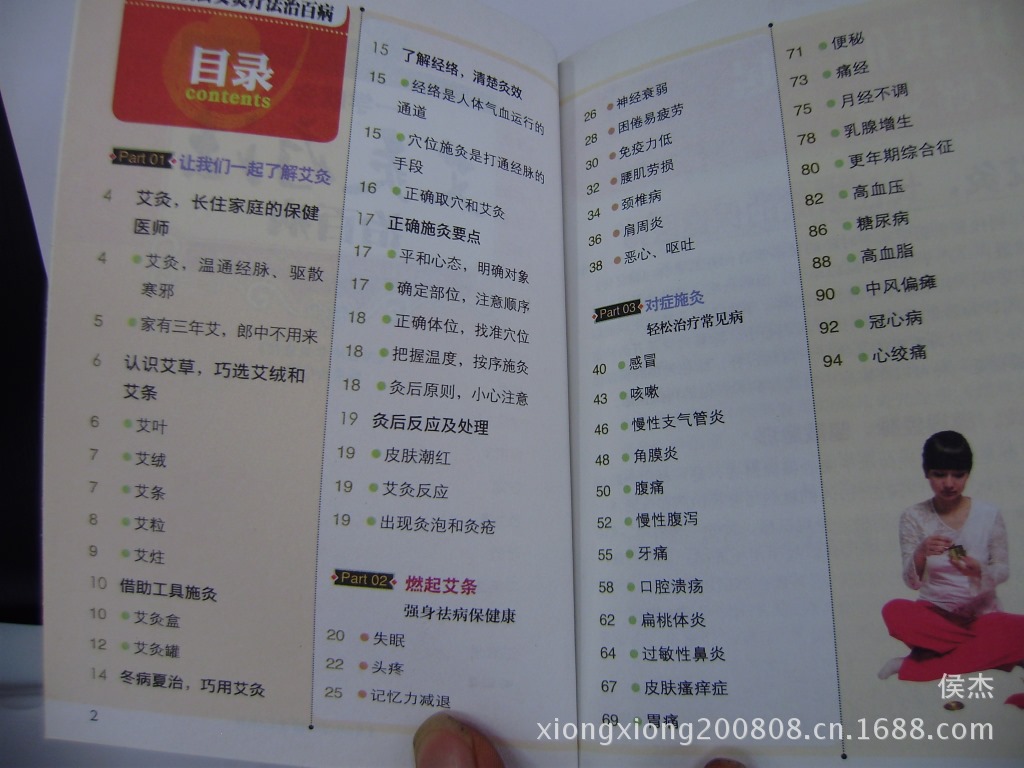 灸疗法治百病
目录
contents
Part 01 让我们一起了解艾灸
4 艾灸，长住家庭的保健
医师
4 艾灸，温通经脉、驱散
寒邪
5 家有三年艾，郎中不用来
6 认识艾草，巧选艾绒和
艾条
6 艾叶
7 艾绒
7 艾条
8 艾粒
9 艾炷
10 借助工具施灸
10 艾灸盒
12 艾灸罐
14 冬病夏治，巧用艾灸
2
15 了解经络，清楚灸效
15 经络是人体气血运行的
通道
15 穴位施灸是打通经脉的
手段
16 正确取穴和艾灸
17 正确施灸要点
17 平和心态，明确对象
17 确定部位，注意顺序
18 正确体位，找准穴位
18 把握温度，按序施灸
18 灸后原则，小心注意
19 灸后反应及处理
19 皮肤潮红
19 艾灸反应
19 出现灸泡和灸疮
Part 02 燃起艾条
强身祛病保健康
20 失眠
22 头疼
25 记忆力减退
26 神经衰弱
28 困倦易疲劳
30 免疫力低
32 腰肌劳损
34 颈椎病
36 肩周炎
38 恶心、呕吐
Part 03 对症施灸
轻松治疗常见病
40 感冒
43 咳嗽
46 慢性支气管炎
48 角膜炎
50 腹痛
52 慢性腹泻
55 牙痛
58 口腔溃疡
62 扁桃体炎
64 过敏性鼻炎
67 皮肤瘙痒症
69 胃痛
71 便秘
73 痛经
75 月经不调
78 乳腺增生
80 更年期综合征
82 高血压
86 糖尿病
88 高血脂
90 中风偏瘫
92 冠心病
94 心绞痛
侯杰
xiongxiong200808.cn.1688.com